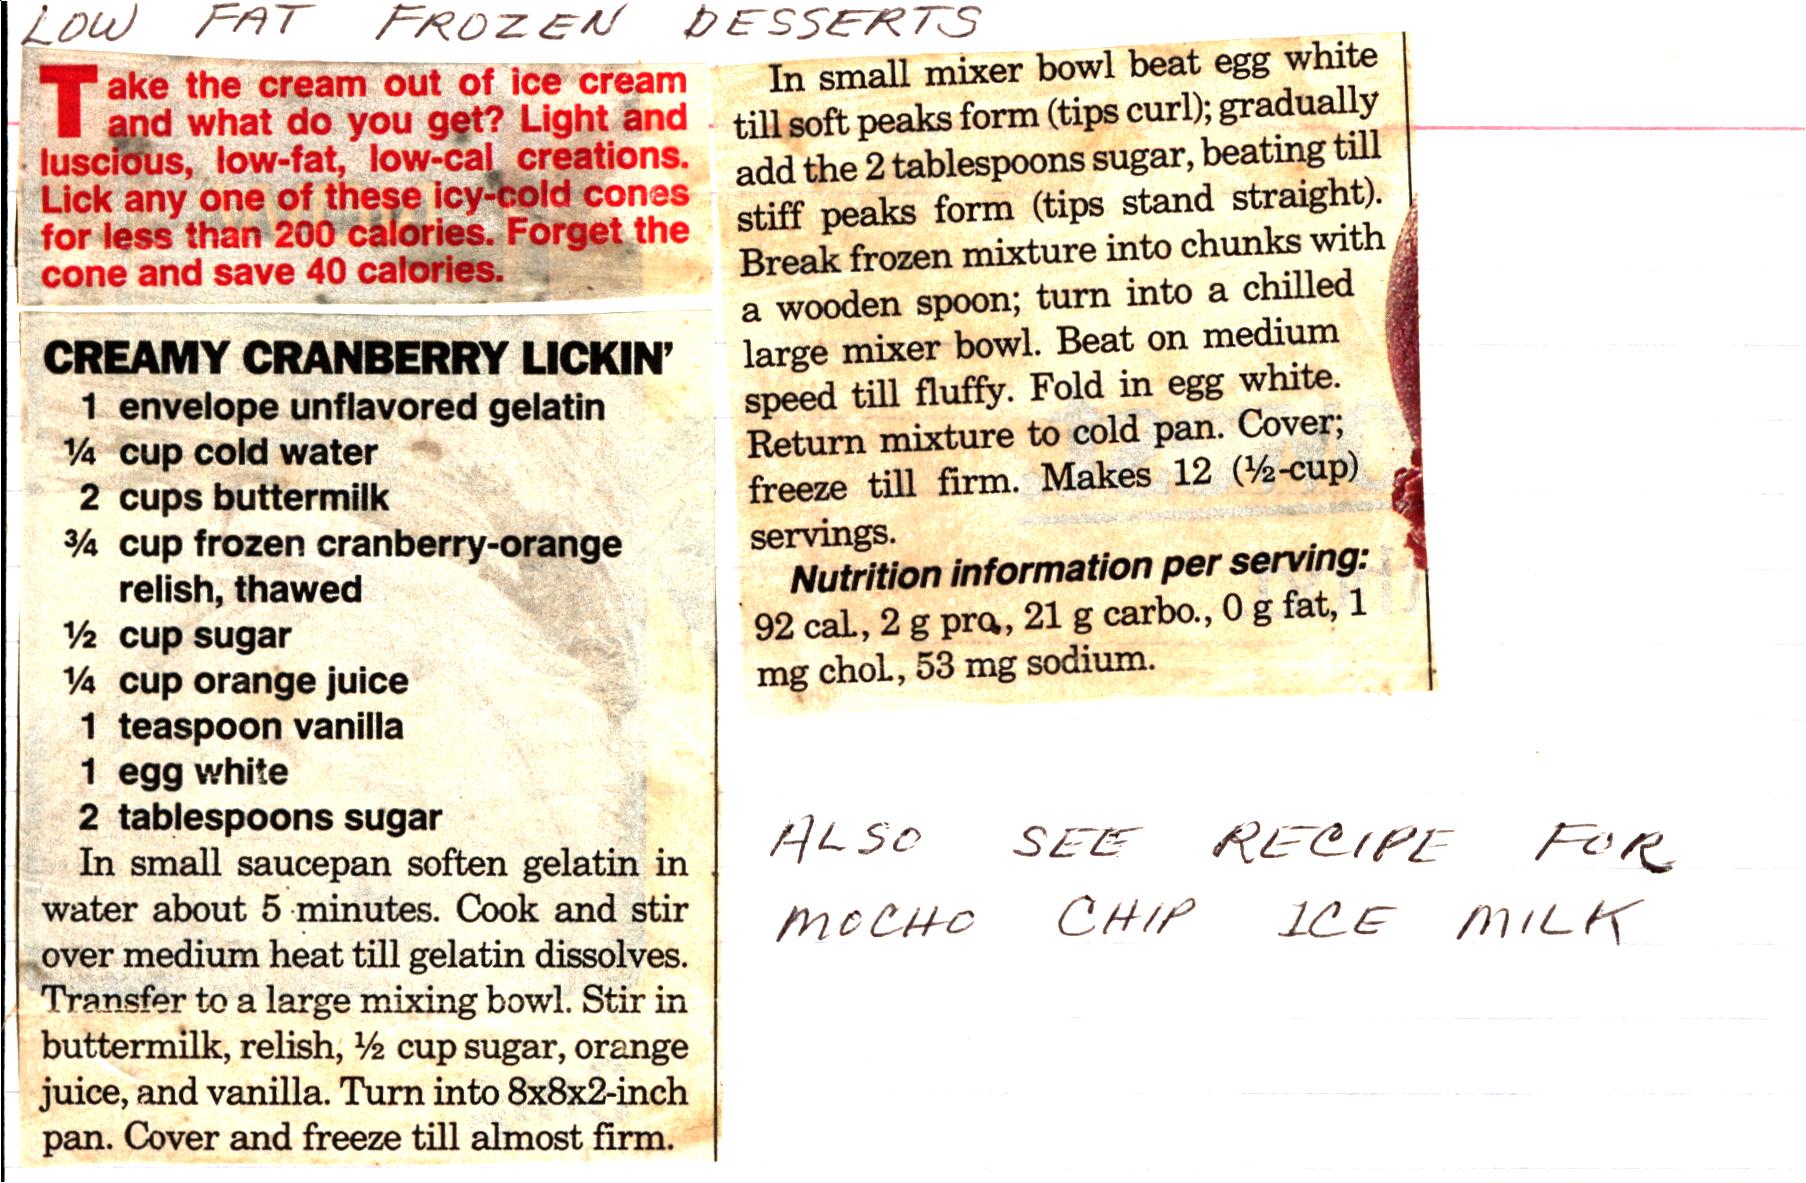 LOW FAT FROZEN DESSERTS
Take the cream out of ice cream
and what do you get? Light and
luscious, low-fat, low-cal creations.
Lick any one of these icy-cold cones
for less than 200 calories. Forget the
cone and save 40 calories.
CREAMY CRANBERRY LICKIN'
1 envelope unflavored gelatin
¼ cup cold water
2 cups buttermilk
¾ cup frozen cranberry-orange
relish, thawed
½ cup sugar
¼ cup orange juice
1 teaspoon vanilla
1 egg white
2 tablespoons sugar
In small saucepan soften gelatin in
water about 5 minutes. Cook and stir
over medium heat till gelatin dissolves.
Transfer to a large mixing bowl. Stir in
buttermilk, relish, ½ cup sugar, orange
juice, and vanilla. Turn into 8x8x2-inch
pan. Cover and freeze till almost firm.
In small mixer bowl beat egg white
till soft peaks form (tips curl); gradually
add the 2 tablespoons sugar, beating till
stiff peaks form (tips stand straight).
Break frozen mixture into chunks with
a wooden spoon; turn into a chilled
large mixer bowl. Beat on medium
speed till fluffy. Fold in egg white.
Return mixture to cold pan. Cover;
freeze till firm. Makes 12 (½-cup)
servings.
Nutrition information per serving:
92 cal., 2 g pro., 21 g carbo., 0 g fat, 1
mg chol., 53 mg sodium.
ALSO SEE RECIPE FOR
MOCHO CHIP ICE MILK